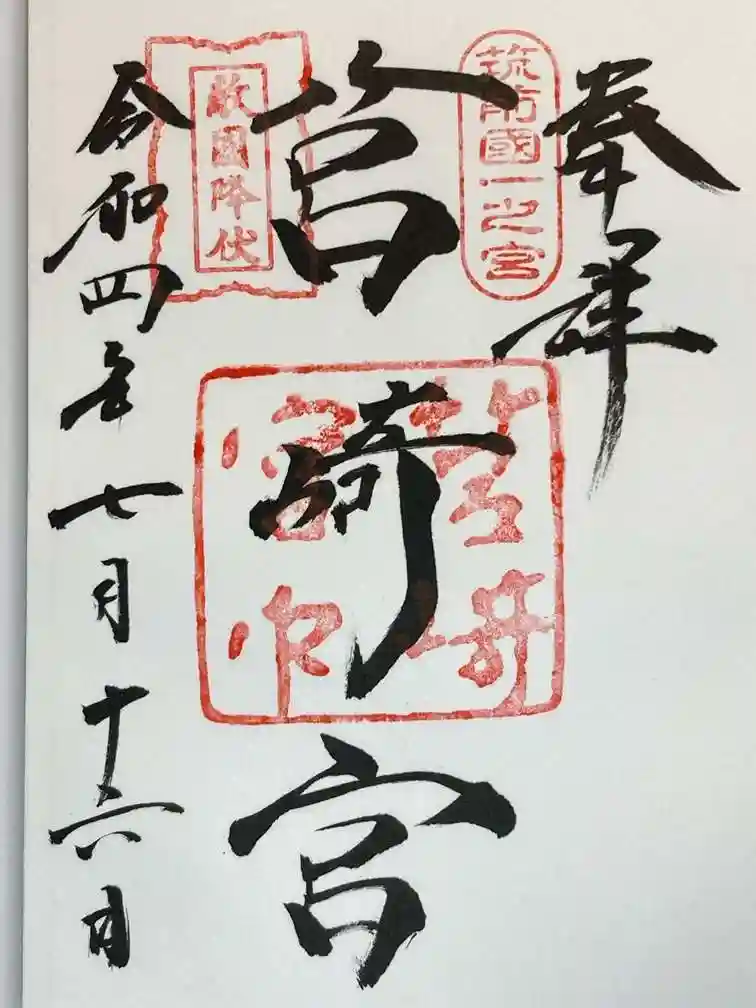 奉拝
筑前國一之宮
筥崎宮
筥崎
宮印
敵國降伏
令和四年七月十六日